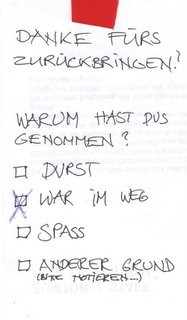 DANKE FÜRS
ZURÜCKBRINGEN!
WARUM HAST DUS
GENOMMEN?
☐ DURST
☒ WAR IM WEG
☐ SPASS
☐ ANDERER GRUND
(BITTE NOTIEREN...)